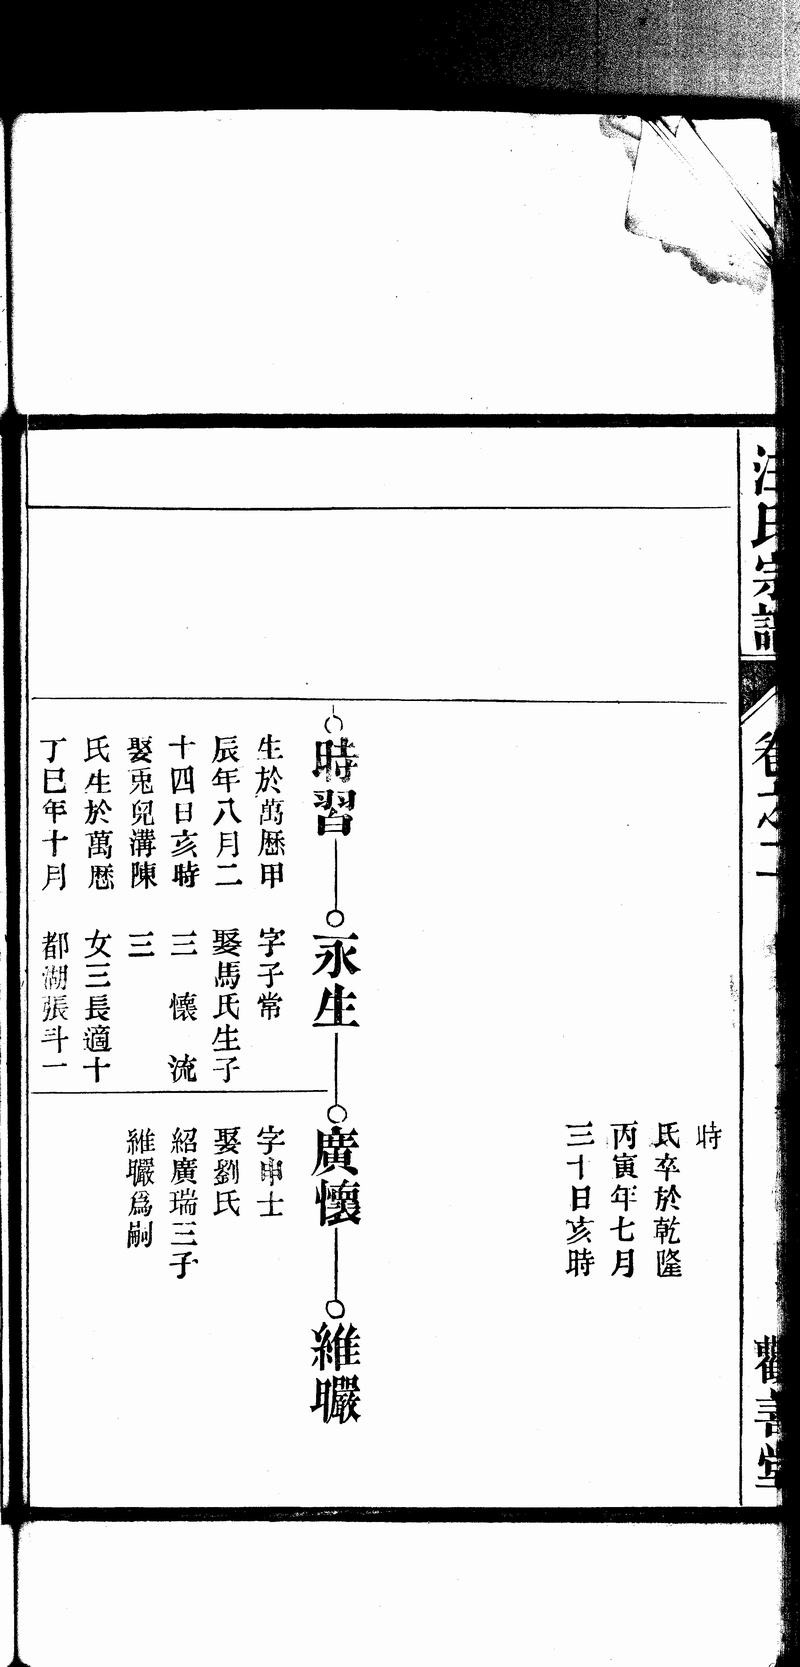 汪氏宗譜
卷之二
觀善堂
時
氏卒於乾隆
丙寅年七月
三十日亥時
時習
生於萬歷甲
辰年八月二
十四日亥時
娶兎兒溝陳
氏生於萬歷
丁巳年十月
永生
字子常
娶馬氏生子
三 懷 流
三
女三長適十
都湖張斗一
廣懷
字申士
娶劉氏
紹廣瑞三子
維曮爲嗣
維曮